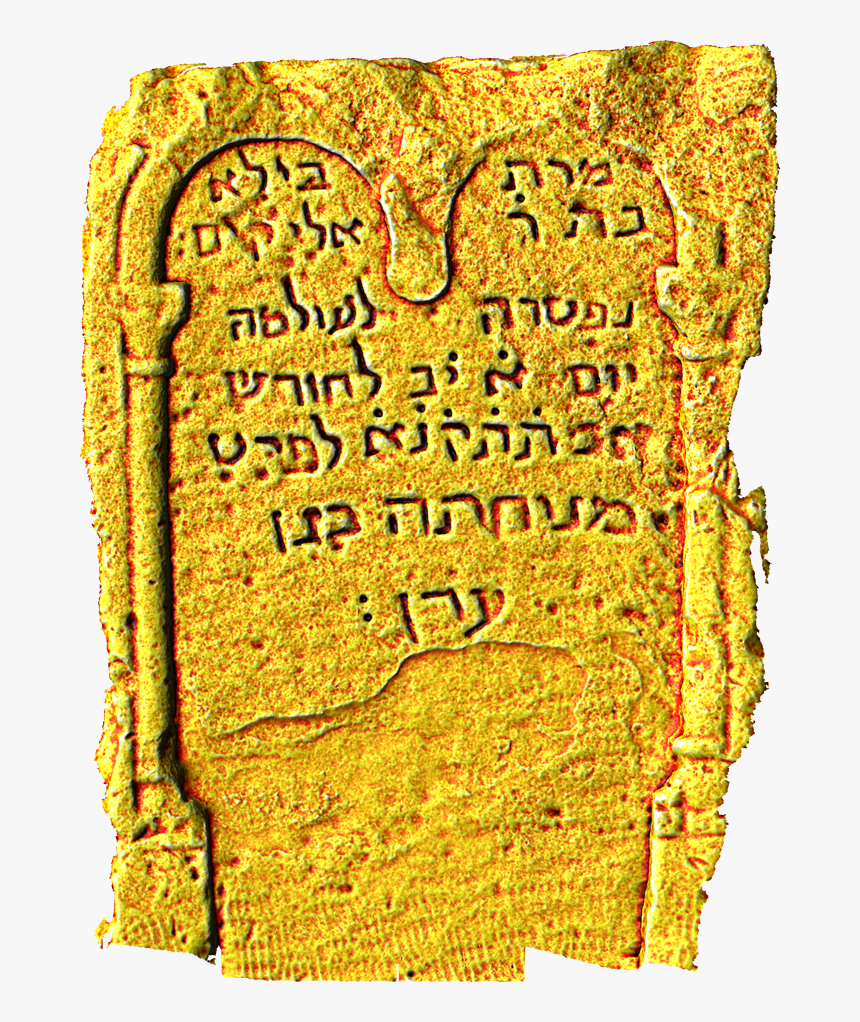 מרת בילא
בת ר׳ אליקים
נפטרה לעולמה
יום א̇ י̇ב לחודש
אב ת̇ת̇ק̇נ̇א̇ לפרט
מנוחתה בגן
עדן :